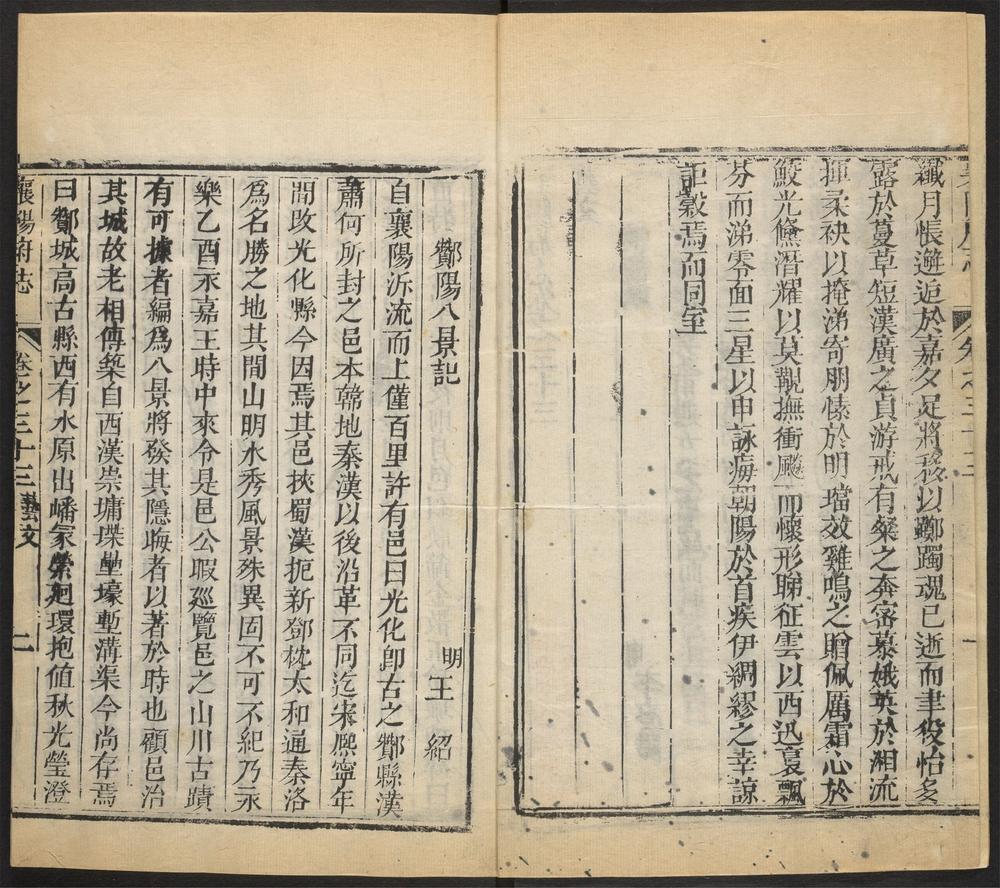 纖月悵邂逅於嘉夕足將移以躑躅魂已逝而聿役怡多
露於蔓草短漢廣之貞游戒有粲之奔密慕娥英於湘流
揮柔袂以掩涕寄朋愫於明璫效雞鳴之贈佩厲霜心於
鮫光儵潛耀以莫覯撫衝飈而懷形睇征雲以西迅裛飄
芬而涕零面三星以申詠痗朝陽於首疾伊綢繆之幸諒
詎穀焉而同室
酇陽八景記
明王紹
自襄陽泝流而上僅百里許有邑曰光化卽古之酇縣漢
蕭何所封之邑本韓地秦漢以後沿革不同迄宋熈寧年
間改光化縣今因焉其邑挾蜀漢扼新鄧枕太和通秦洛
爲名勝之地其間山明水秀風景殊異固不可不紀乃永
樂乙酉永嘉王時中來令是邑公暇廵覽邑之山川古蹟
有可據者編爲八景將發其隱晦者以著於時也顧邑治
其城故老相傳築自西漢崇墉堞壘壕塹溝渠今尚存焉
曰酇城高古縣西有水原出嶓冢縈廻環抱值秋光瑩澄
襄陽府志 卷之三十三 藝文 二